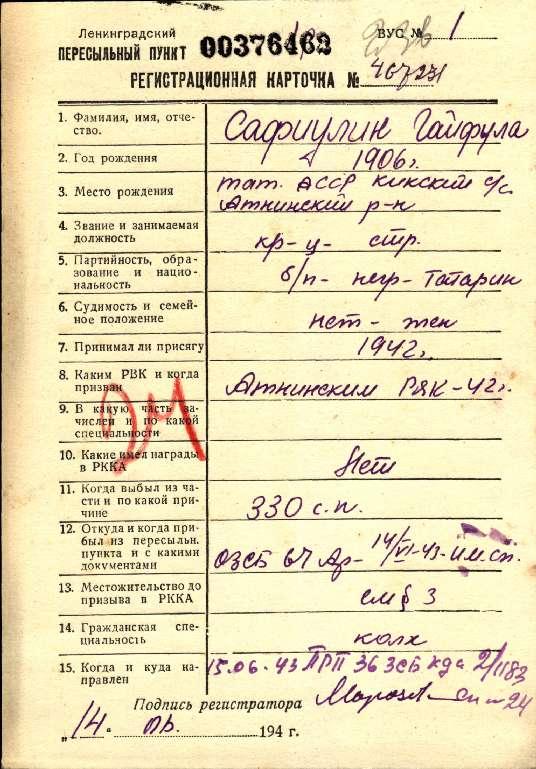 Ленинградский
ПЕРЕСЫЛЬНЫЙ ПУНКТ 00376462 ВУС № 1
РЕГИСТРАЦИОННАЯ КАРТОЧКА № 467271
1. Фамилия, имя, отче-
ство.
Сафиулин Гайфула
2. Год рождения
1906 г.
3. Место рождения
тат. АССР Кикский с/с
Атнинский р-н
4. Звание и занимаемая
должность
кр-ц - стр.
5. Партийность, обра-
зование и нацио-
нальность
б/п - негр - татарин
6. Судимость и семей-
ное положение
нет - жен
7. Принимал ли присягу
1942 г.
8. Каким РВК и когда
призван
Атнинским РВК - 42 г.
9. В какую часть за-
числен и по какой
специальности
24
10. Какие имел награды
в РККА
Нет
11. Когда выбыл из ча-
сти и по какой при-
чине
330 с.п.
12. Откуда и когда при-
был из пересыльн.
пункта и с какими
документами
ОЗСБ 67 Ар - 14/VI-43 - им.сп.
13. Местожительство до
призыва в РККА
см § 3
14. Гражданская спе-
циальность
колх
15. Когда и куда на-
правлен
15.06.43 ПРП 36 ЗСБ кда 2/1183
Подпись регистратора
24
„14“ 194 г.